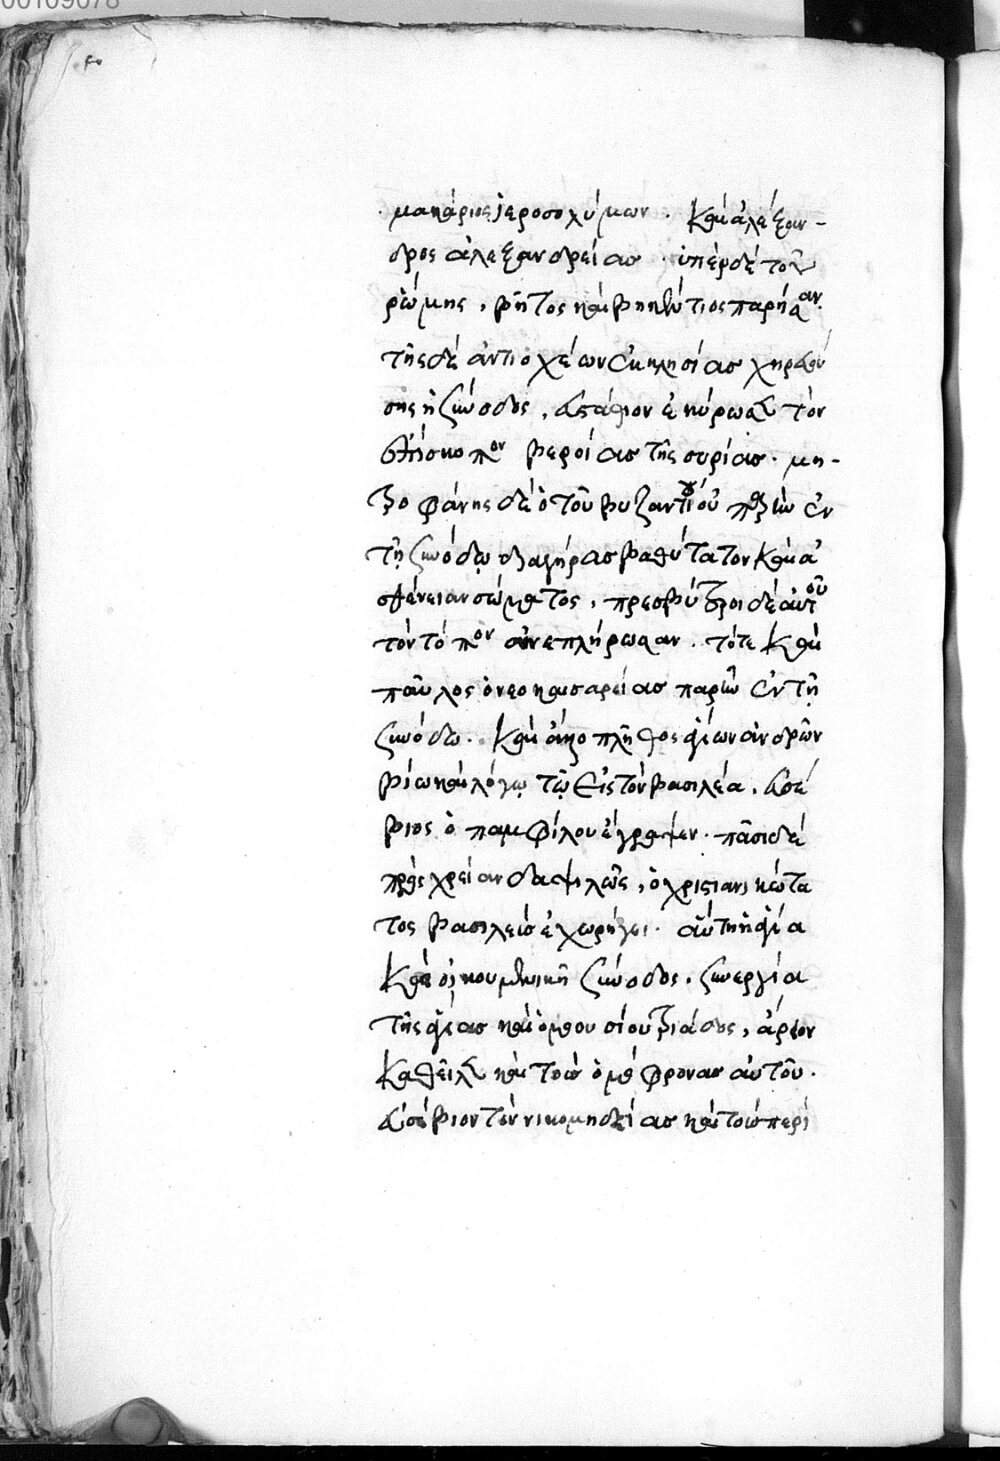 00109078
μακάριος ἱεροσολύμων · καὶ ἀλέξαν-
δρος ἀλεξανδρείας · ὑπὲρ δὲ τοῦ
ῥώμης, βίτος καὶ βικέντιος παρῆσαν.
τῆς δὲ ἀντιοχέων ἐκκλησίας χηρευού
σης ἡ σύνοδος, εὐστάθιον ἐκύρωσε τὸν
ἐπίσκοπον βεροίας τῆς συρίας · μη-
τροφάνης δὲ ὁ τοῦ βυζαντίου ἐν
τῇ συνόδῳ διὰ γήρας βαθύτατον καὶ ἀ
σθένειαν σώματος, πρεσβύτεροι δὲ αὐτοῦ
τὸν τόπον ἀνεπλήρωσαν · τότε καὶ
παῦλος ὁ νεοκαισαρείας παρῆν ἐν τῇ
συνόδω · καὶ πλῆθος ἁγίων ἀνδρῶν
βίω καὶ λόγῳ τῷ εἰς τὸν βασιλέα, εὐσέ
βιος ὁ παμφίλου ἔγραψεν · πᾶσι δὲ
πρὸς χρείαν δαψιλῶς, ὁ χριστιανικώτα
τος βασιλεὺς ἐχωρήγει · αὕτη ἡ ἁγία
καὶ οἰκουμενικὴ σύνοδος, συνεργία
τῆς ἁγίας καὶ ὁμοουσίου τριάδος, ἄρειον
καθεῖλε καὶ τοὺς ὁμόφρονας αὐτοῦ ·
εὐσέβιον τὸν νικομηδείας καὶ τοὺς περὶ